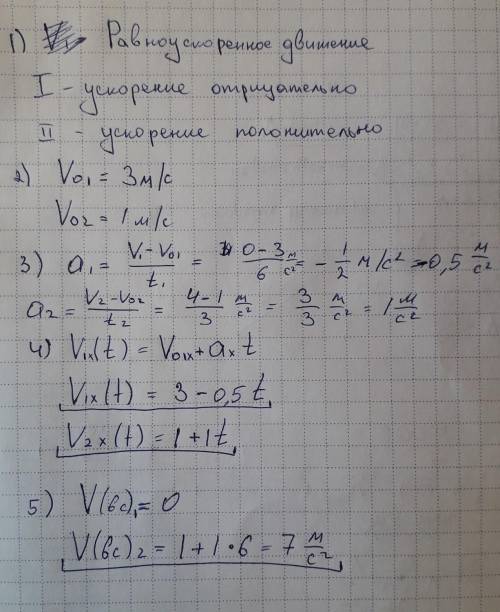 1) Равноускоренное движение
I - ускорение отрицательно
II - ускорение положительно
2) V01 = 3 м/с
V02 = 1 м/с
3) a1 = (V1 - V01)/t1 = (0-3)/6 м/с² = - 1/2 м/с² = -0,5 м/с²
a2 = (V2 - V02)/t2 = (4-1)/3 м/с² = 3/3 м/с² = 1 м/с²
4) V1x(t) = V01x + ax t
V1x(t) = 3 - 0,5 t
V2x(t) = 1 + 1t
5) V(6c)1 = 0
V(6c)2 = 1 + 1·6 = 7 м/с²